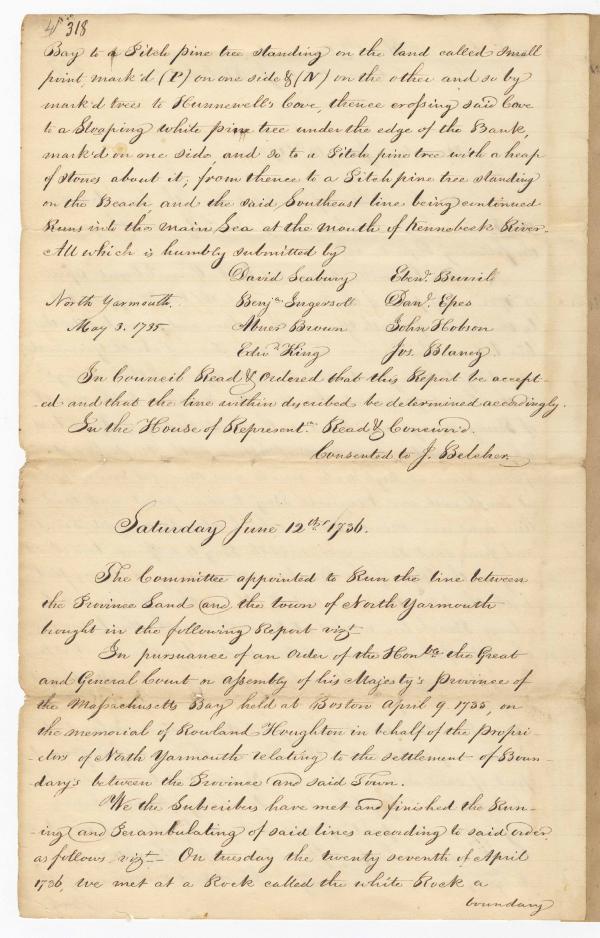 318
Bay to a Pitch pine tree standing on the land called small
point, mark'd (P) on one side & (N) on the other and so by
mark'd trees to Hunnewell's Cove, thence crossing said Cove
to a Stooping white pine tree under the edge of the Bank,
mark'd on one side, and so to a Pitch pine tree with a heap
of stones about it; from thence to a Pitch pine tree standing
on the Beach, and the said Southeast line being continued
Runs into the main Sea at the mouth of Kennebeck River.
All which is humbly submitted by
David Seabury Eben.r Burril
North Yarmouth. Benj.n Ingersoll Dan.l Epes
May 3. 1735 Abner Brown John Hobson
Edw.d King Jos. Blaney
In Council Read & Ordered that this Report be accept-
-ed and that the line within discribed be determined accordingly.
In the House of Represent.ves Read & Concur'd.
Consented to J. Belcher
Saturday June 12th 1736.
The Committee appointed to Run the line between
the Province Land and the town of North Yarmouth
brought in the following Report vizt
In pursuance of an Order of the Honble the Great
and General Court or Assembly of his Majesty's Province of
the Massachusetts Bay held at Boston April 9 1735, on
the memorial of Rowland Houghton in behalf of the Propri-
-etors of North Yarmouth relating to the settlement of Boun-
-dary's between the Province and said Town.
We the Subscribers have met and finished the Run-
-ing and Perambulating of said lines according to said order,
as follows vizt - On tuesday the twenty seventh of April
1736, we met at a Rock called the white Rock a
boundary